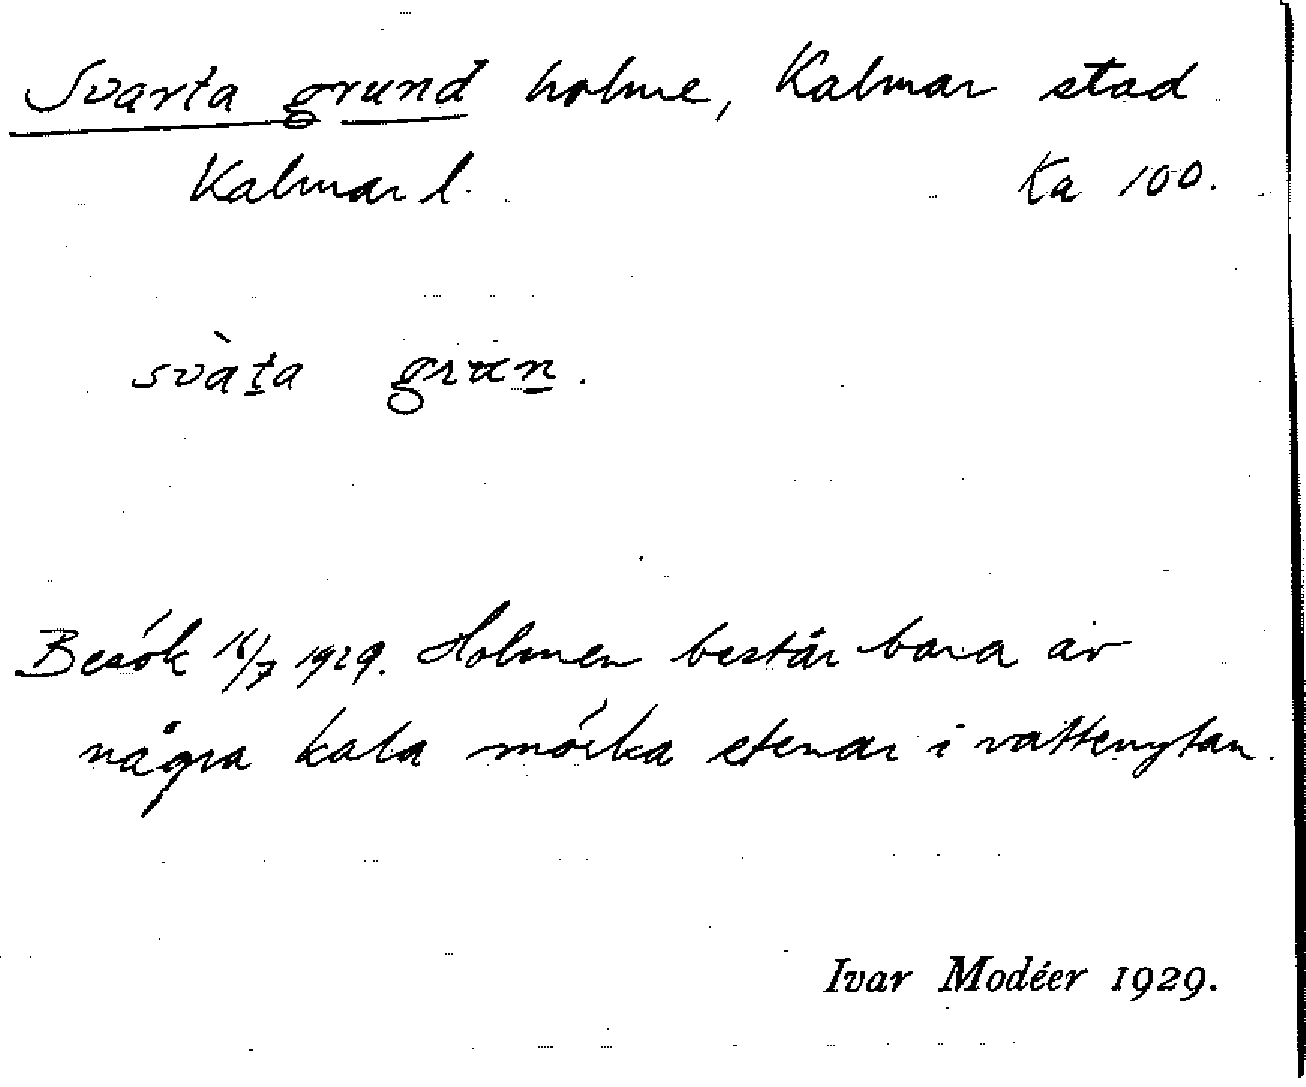 Svarta grund holme, Kalmar stad
Kalmar l. Ka 100.
svàta grun.
Besök 16/7 1929. Holmen består bara av
några kala mörka stenar i vattenytan.
Ivar Modéer 1929.